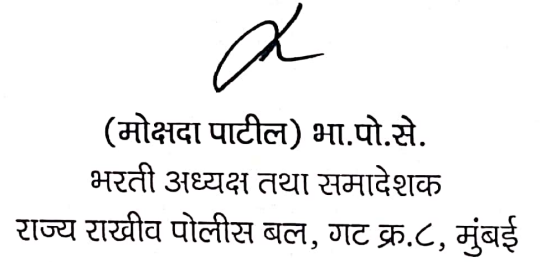 (मोक्षदा पाटील) भा.पो.से.
भरती अध्यक्ष तथा समादेशक
राज्य राखीव पोलीस बल, गट क्र.८, मुंबई